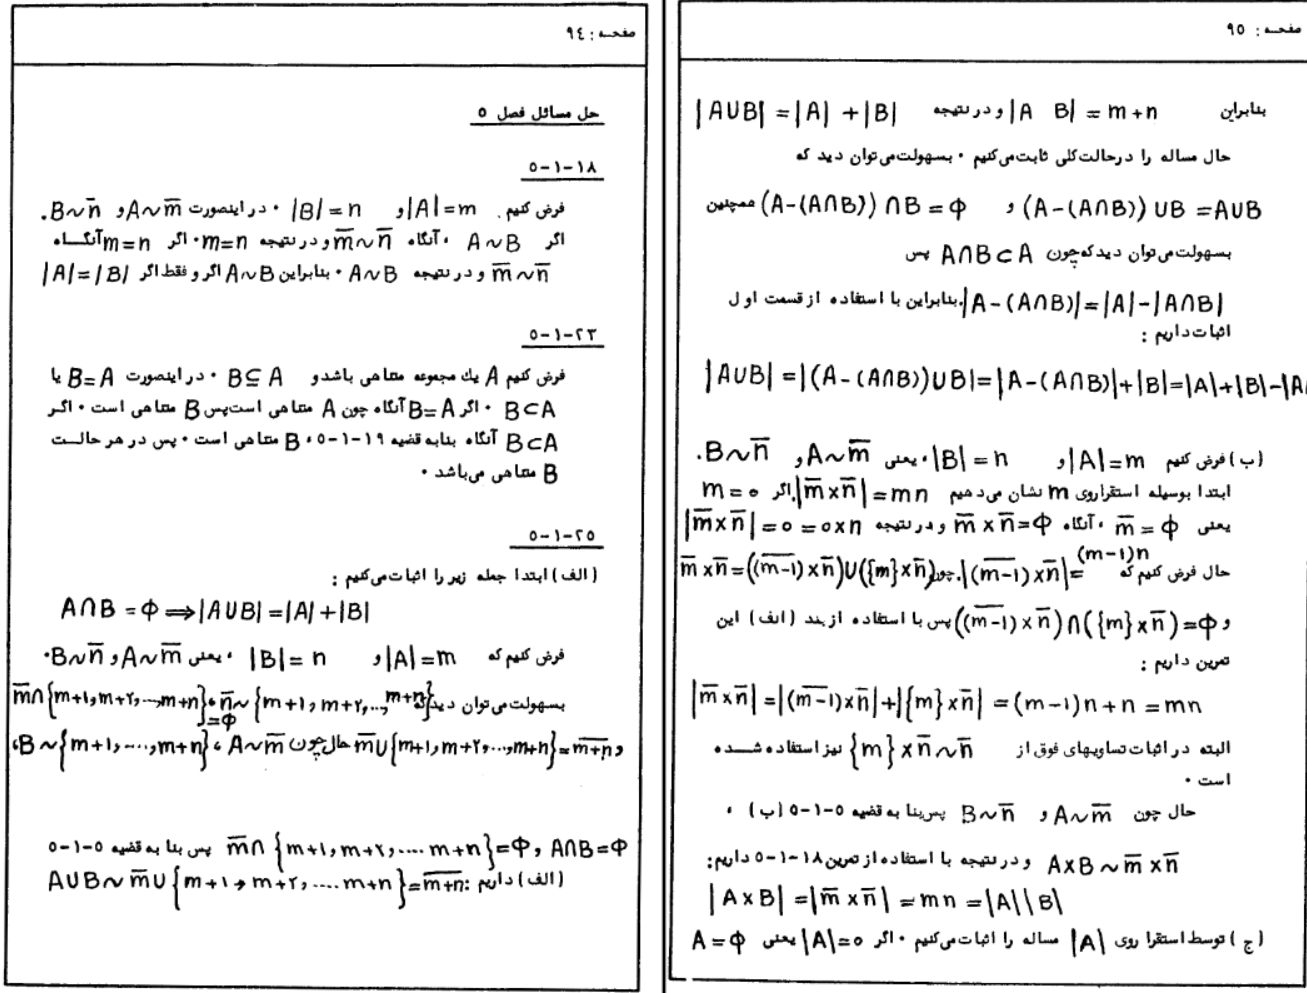 صفحه : ٩٤
حل مسائل فصل ٥
٥-١-١٨
فرض کنیم |A|=m و |B|=n ٠ در اینصورت A∼m̅ و B∼n̅.
اگر A∼B ، آنگاه m̅∼n̅ و در نتیجه m=n ٠ اگر m=n آنگاه
m̅∼n̅ و در نتیجه A∼B ٠ بنابراین A∼B اگر و فقط اگر |A|=|B|
٥-١-٢٣
فرض کنیم A یك مجموعه متناهی باشد و B⊆A ٠ در اینصورت B=A یا
B⊂A ٠ اگر B=A آنگاه چون A متناهی است پس B متناهی است ٠ اگر
B⊂A آنگاه بنابه قضیه ١٩-١-٥ ، B متناهی است ٠ پس در هر حالت
B متناهی می‌باشد ٠
٥-١-٢٥
(الف) ابتدا جمله زیر را اثبات می‌کنیم :
A∩B = Φ ⟹ |A∪B| = |A| + |B|
فرض کنیم که |A|=m و |B|=n ، یعنی A∼m̅ و B∼n̅٠
بسهولت می‌توان دید که n̅∼{m+1, m+٢, ..., m+n} ، m̅∩{m+1, m+٢, ..., m+n}=Φ
و m̅∪{m+1, m+٢, ..., m+n}=\overline{m+n} حال چون A∼m̅ ، B∼{m+1, ..., m+n} ،
A∩B=Φ و m̅∩{m+1, m+٢, .... m+n}=Φ پس بنا به قضیه ٥-١-٥
(الف) داریم : A∪B∼m̅∪{m+1, m+٢, .... m+n}=\overline{m+n}
صفحه : ٩٥
بنابراین |A B| = m+n و در نتیجه |A∪B| = |A| + |B|
حال مساله را در حالت کلی ثابت می‌کنیم ٠ بسهولت می‌توان دید که
(A-(A∩B))∪B = A∪B و (A-(A∩B))∩B = Φ همچنین
بسهولت می‌توان دید که چون A∩B⊂A پس
|A-(A∩B)| = |A|-|A∩B| . بنابراین با استفاده از قسمت اول
اثبات داریم :
|A∪B| = |(A-(A∩B))∪B| = |A-(A∩B)|+|B| = |A|+|B|-|A
(ب) فرض کنیم |A|=m و |B|=n ، یعنی A∼m̅ و B∼n̅.
ابتدا بوسیله استقرا روی m نشان می‌دهیم |m̅×n̅|=mn . اگر m=٥
یعنی m̅=Φ ، آنگاه m̅×n̅=Φ و در نتیجه |m̅×n̅|=٥=٥×n
حال فرض کنیم که |\overline{(m-1)}×n̅|=(m-1)n . چون m̅×n̅=(\overline{(m-1)}×n̅)∪({m}×n̅)
و (\overline{(m-1)}×n̅)∩({m}×n̅)=Φ پس با استفاده از بند (الف) این
تمرین داریم :
|m̅×n̅| = |\overline{(m-1)}×n̅|+|{m}×n̅| = (m-1)n+n = mn
البته در اثبات تساویهای فوق از {m}×n̅∼n̅ نیز استفاده شده
است ٠
حال چون A∼m̅ و B∼n̅ پس بنا به قضیه ٥-١-٥ (ب) ،
A×B∼m̅×n̅ و در نتیجه با استفاده از تمرین ١٨-١-٥ داریم:
|A×B| = |m̅×n̅| = mn = |A||B|
(ج) توسط استقرا روی |A| مساله را اثبات می‌کنیم ٠ اگر |A|=٥ یعنی A=Φ